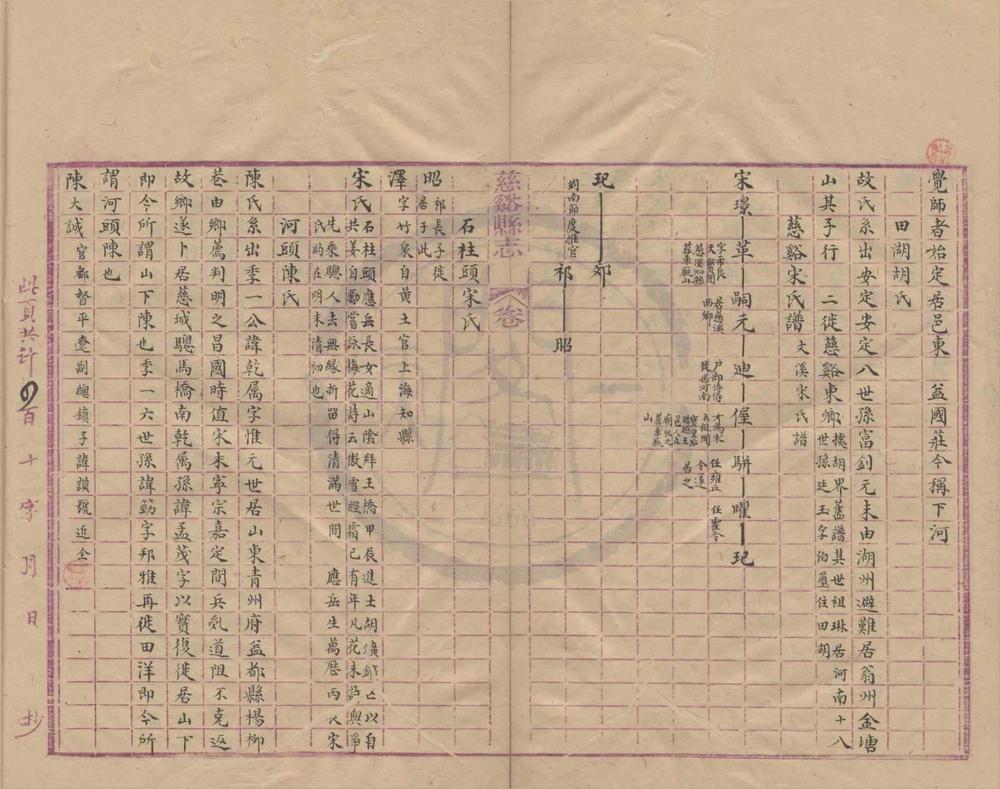 覺師者始定居邑東　益國莊今稱下河
田湖胡氏
故氏系出安定安定八世孫富釗元末由湖州避難居翁州金塘
山其子行二徙慈谿東鄉據胡界舊譜其世祖琳居河南十八
世孫廷玉字伯住田胡
慈谿宋氏譜 大溪宋氏譜
宋璟—革—嗣元—迪—偓—駢—曜—玘
字希長
居慈溪西鄉
玘—郊
荊南節度推官
祁—昭
慈谿縣志
卷
石柱頭宋氏
昭 祁長子徙居于此
澤 字竹泉自黃土官上海知縣
宋氏 石柱頭應岳長女適山陰拜王橋甲辰進士胡亡以自
共姜自勵嘗詠梅花詩云傲雪殿霜已有年凡花未許與爭
先乘驄人去無緣折留得清滿世間　應岳生萬歷丙宋
氏的在明末清初也
河頭陳氏
陳氏系出季一公諱乾属字惟元世居山東青州府益都縣楊柳
巷由鄉薦判明之昌國時值宋末寧宗嘉定間兵亂道阻不克返
故鄉遂卜居慈城驄馬橋南乾属孫諱孟茂字以實復徙居山下
即今所謂山下陳也季一六世孫諱筋字邦雅再徙田洋即今所
謂河頭陳也
陳大誠 官都督平遼副總鎮子諱讃號近全
此頁共計　百十字月日抄